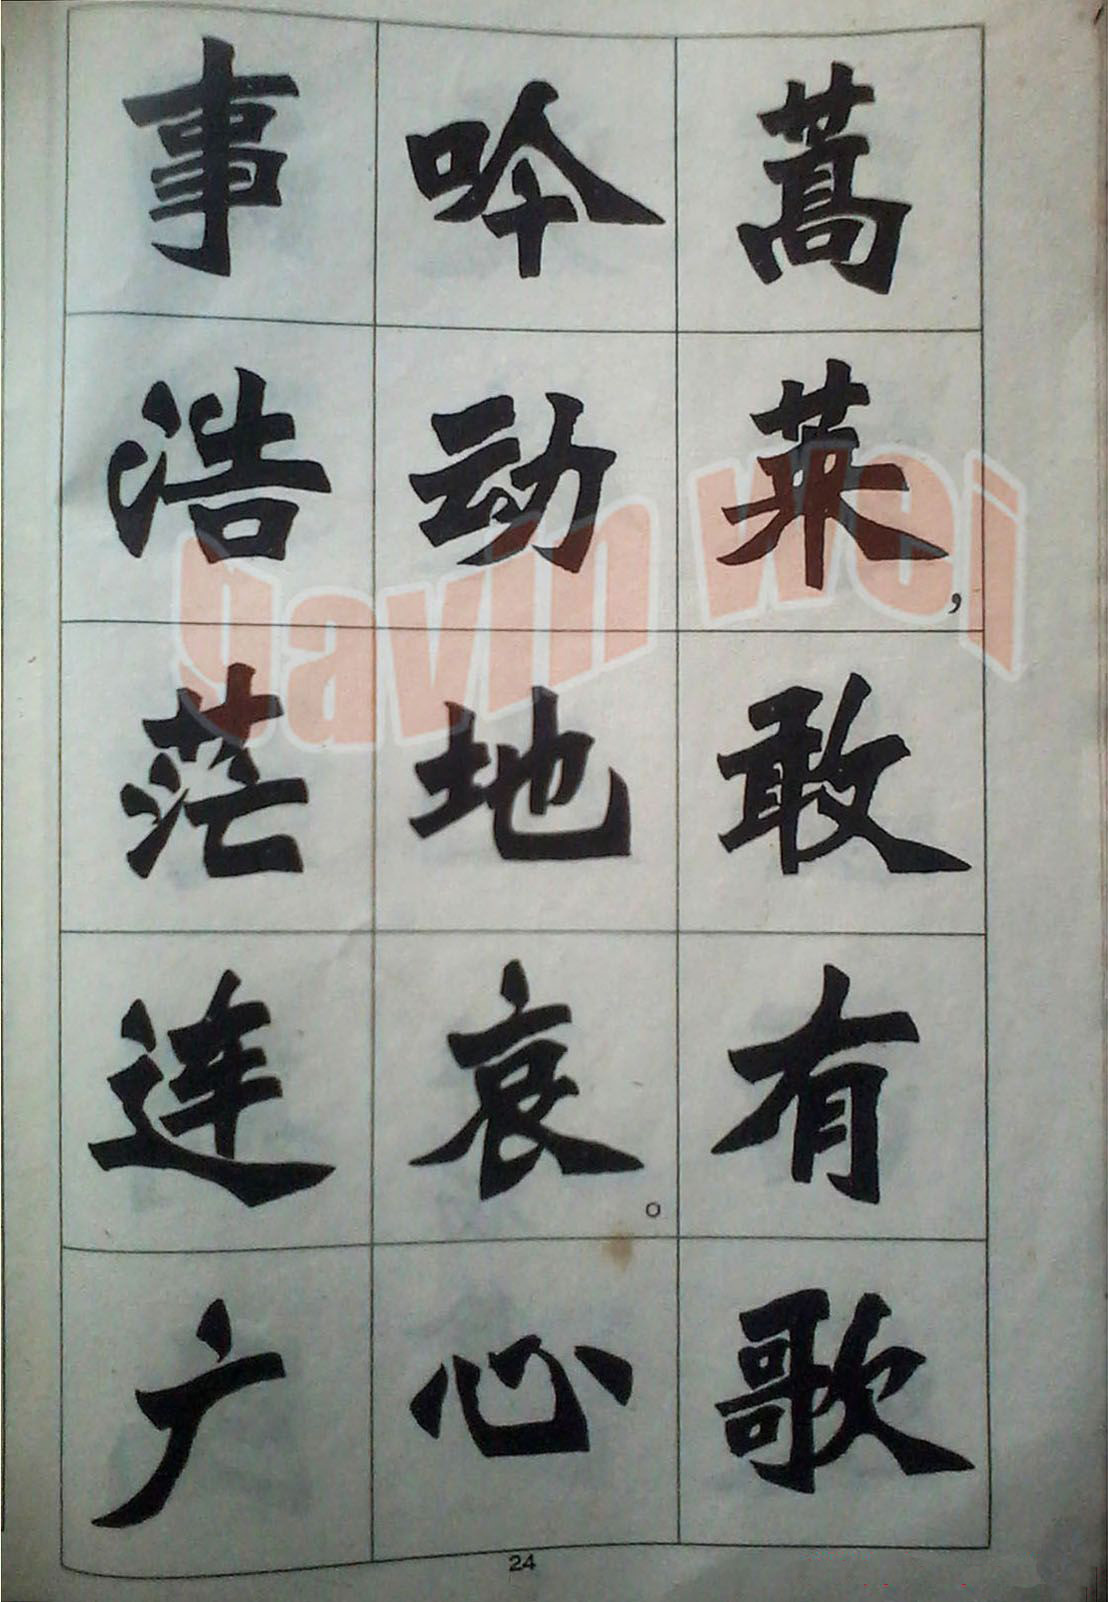 蒿莱,敢有歌
吟动地哀。心
事浩茫连广
24
gavin wei